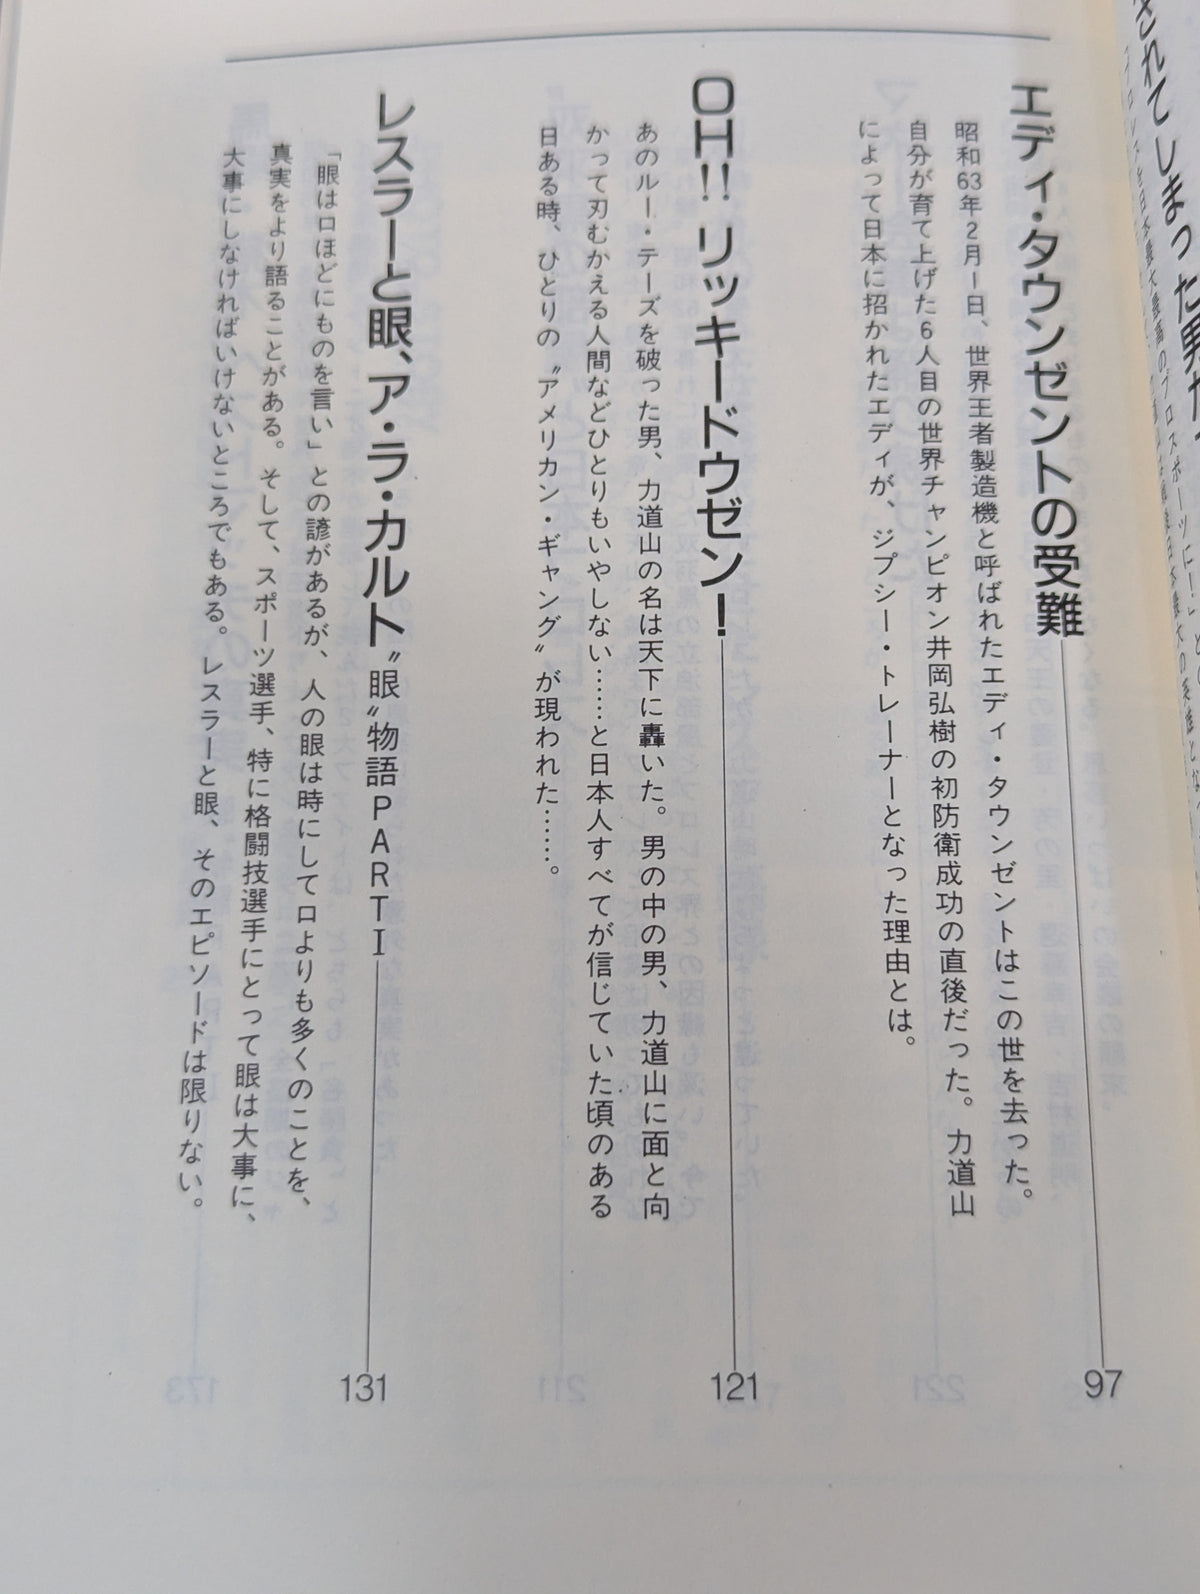 されてしまった男た
エディ・タウンゼントの受難
97
昭和63年2月1日、世界王者製造機と呼ばれたエディ・タウンゼントはこの世を去った。
自分が育て上げた6人目の世界チャンピオン井岡弘樹の初防衛成功の直後だった。力道山
によって日本に招かれたエディが、ジプシー・トレーナーとなった理由とは。
OH!! リッキードウゼン!
121
あのルー・テーズを破った男、力道山の名は天下に轟いた。男の中の男、力道山に面と向
かって刃むかえる人間などひとりもいやしない……と日本人すべてが信じていた頃のある
日ある時、ひとりの〝アメリカン・ギャング〟が現われた……。
レスラーと眼、ア・ラ・カルト〝眼〟物語PARTI
131
「眼は口ほどにものを言い」との諺があるが、人の眼は時にして口よりも多くのことを、
真実をより語ることがある。そして、スポーツ選手、特に格闘技選手にとって眼は大事に、
大事にしなければいけないところでもある。レスラーと眼、そのエピソードは限りない。